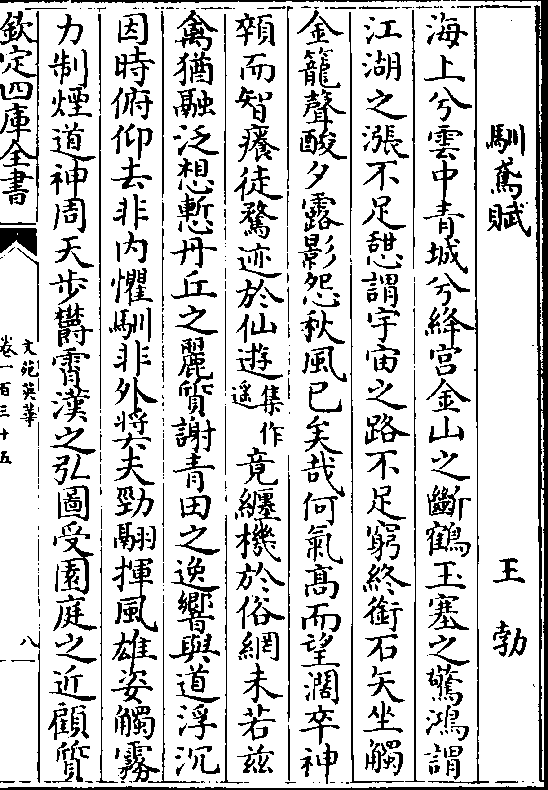 馴鳶賦　王勃
海上兮雲中青城兮絳宫金山之斷鶴玉塞之驚鴻謂
江湖之漲不足憇謂宇宙之路不足窮終銜石矢坐觸
金籠聲酸夕露影怨秋風已矣哉何氣髙而望濶卒神
頖而智癢徒騖迹於仙遊集作遥竟纒機於俗網未若兹
禽猶融泛想慙丹丘之麗質謝青田之逸響與道浮沉
因時俯仰去非内懼馴非外奬夫勁翮揮風雄姿觸霧
力制煙道神周天步欝霄漢之弘圖受園庭之近顧質
欽定四庫全書
文苑英華
卷一百三十五
八